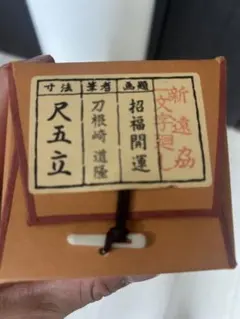 新遠忍
(文字廻)
画題
招福開運
筆者
刀根崎 道隆
寸法
尺五立